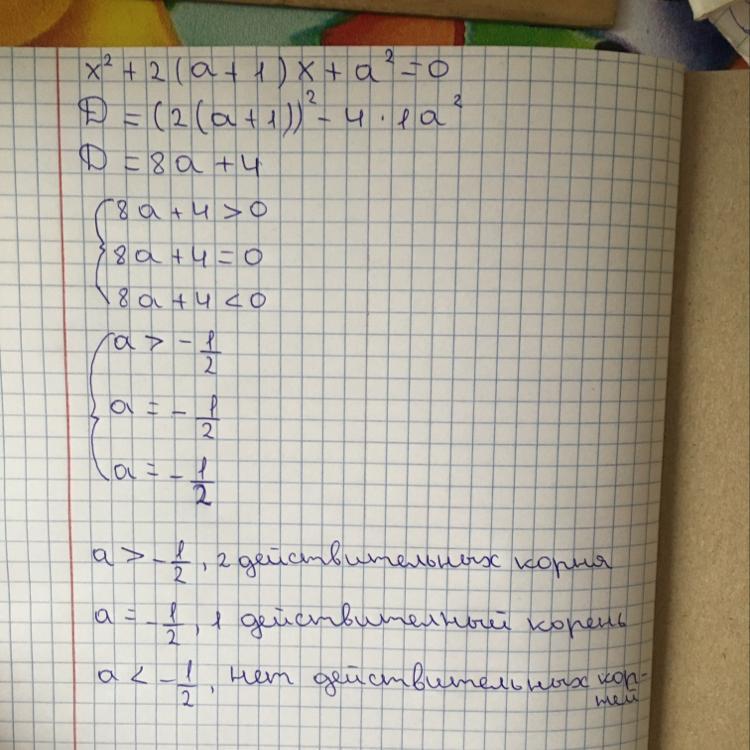 x² + 2(a+1)x + a² = 0
D = (2(a+1))² - 4 · 1a²
D = 8a + 4
8a + 4 > 0
8a + 4 = 0
8a + 4 < 0
a > - 1/2
a = - 1/2
a = - 1/2
a > - 1/2, 2 действительных корня
a = - 1/2, 1 действителный корень
a < - 1/2, нет действительных кор-
тей